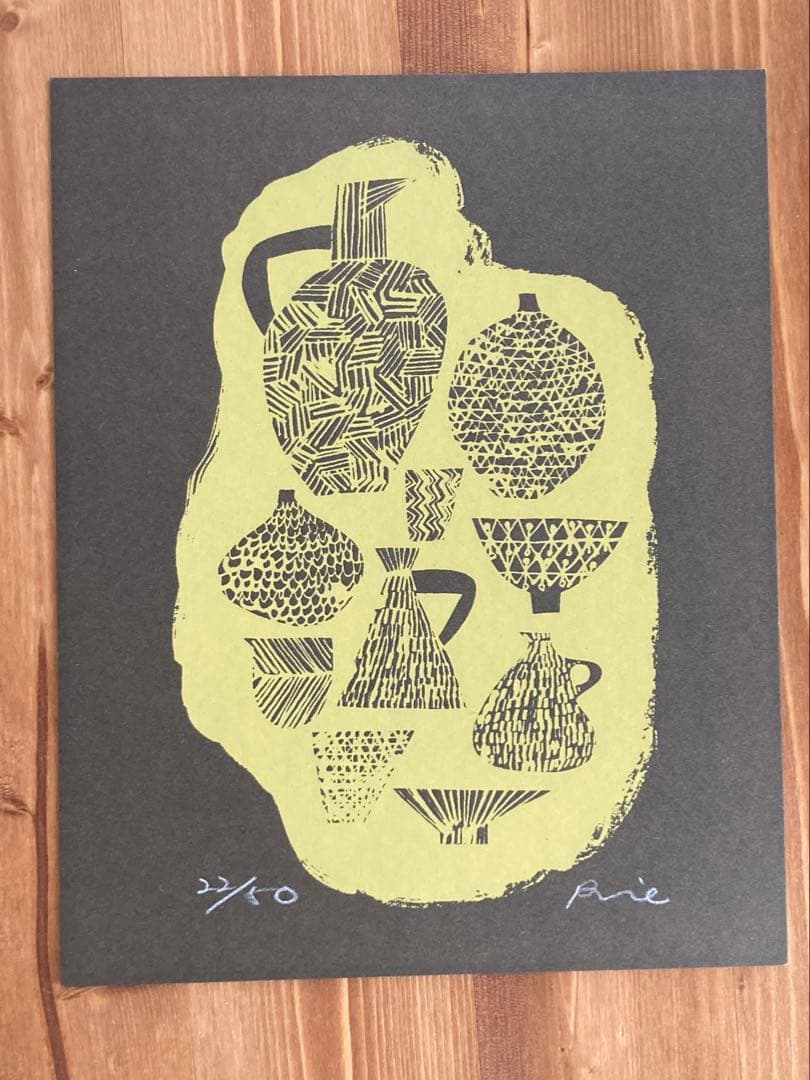 22/50
Rie